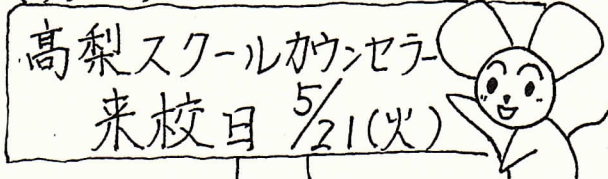 高梨スクールカウンセラー
来校日 5/21(火)